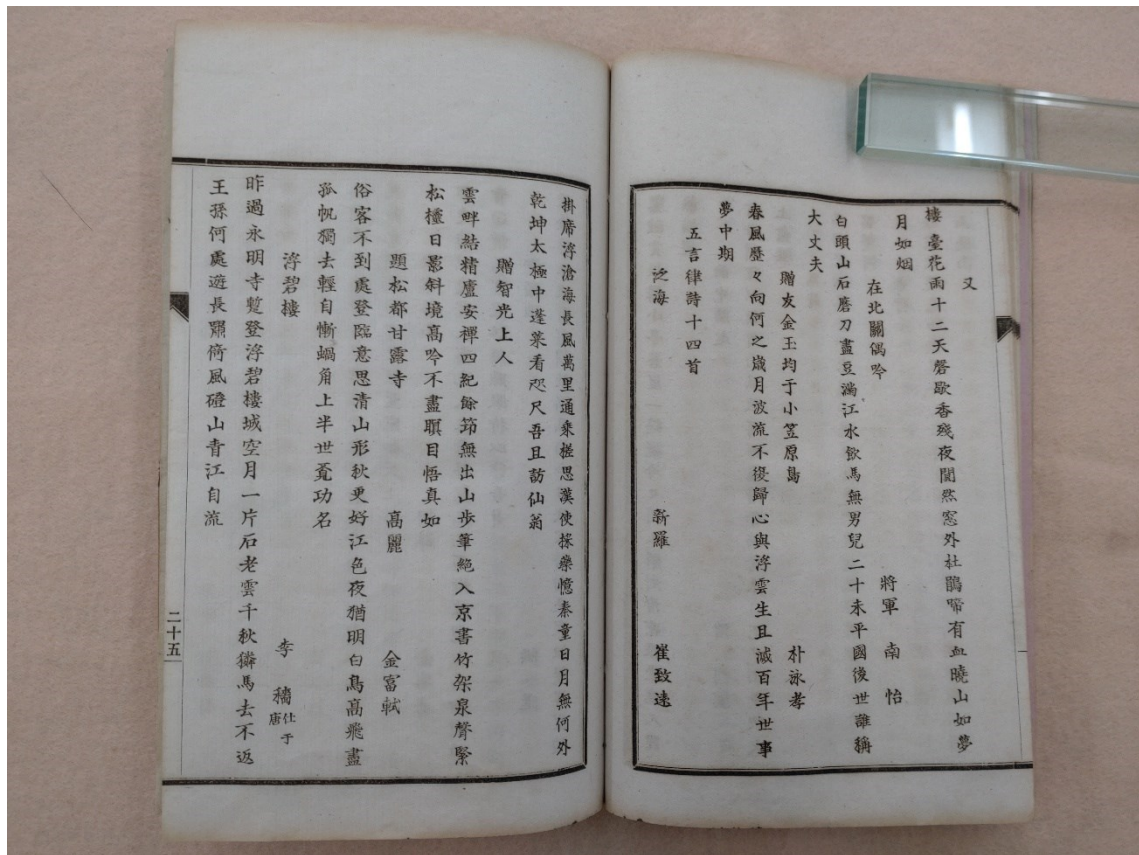 又
樓臺花雨十二天磬歇香殘夜闃然窓外杜鵑啼有血曉山如夢
月如烟
在北關偶吟 將軍 南怡
白頭山石磨刀盡豆滿江水飮馬無男兒二十未平國後世誰稱
大丈夫
贈友金玉均于小笠原島 朴泳孝
春風歷々向何之歲月波流不復歸心與浮雲生且滅百年世事
夢中期
五言律詩十四首
泛海 新羅 崔致遠
掛席浮滄海長風萬里通乘槎思漢使採藥憶秦童日月無何外
乾坤太極中蓬萊看咫尺吾且訪仙翁
贈智光上人
雲畔結精廬安禪四紀餘筇無出山步筆絕入京書竹架泉聲緊
松欞日影斜境高吟不盡瞑目悟真如
題松都甘露寺 高麗 金富軾
俗客不到處登臨意思清山形秋更好江色夜猶明白鳥高飛盡
孤帆獨去輕自慚蝸角上半世覔功名
浮碧樓 李穡仕于唐
昨過永明寺暫登浮碧樓城空月一片石老雲千秋獜馬去不返
王孫何處遊長嘯倚風磴山青江自流
二十五